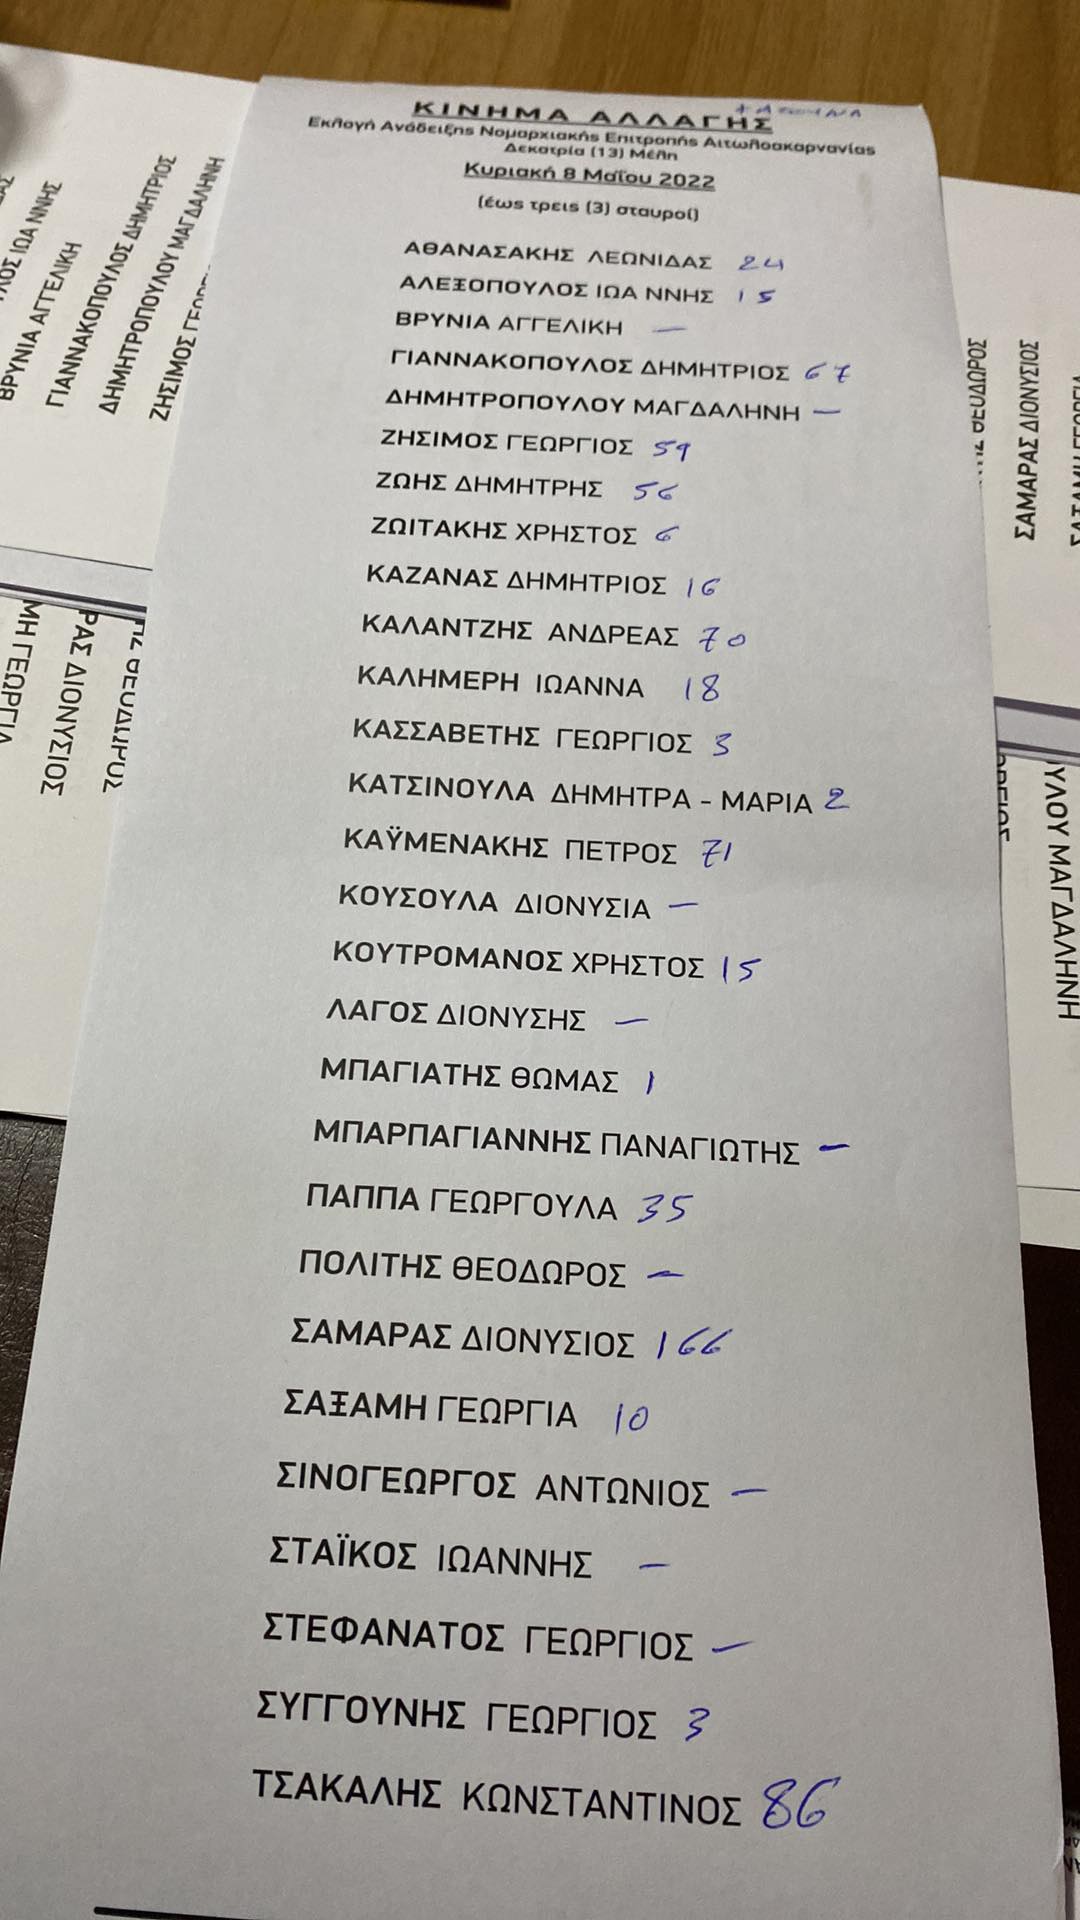 ΚΙΝΗΜΑ ΑΛΛΑΓΗΣ
Εκλογή Ανάδειξης Νομαρχιακής Επιτροπής Αιτωλοακαρνανίας
Δεκατρία (13) Μέλη
Κυριακή 8 Μαΐου 2022
(έως τρεις (3) σταυροί)
ΑΘΑΝΑΣΑΚΗΣ ΛΕΩΝΙΔΑΣ 24
ΑΛΕΞΟΠΟΥΛΟΣ ΙΩΑ ΝΝΗΣ 15
ΒΡΥΝΙΑ ΑΓΓΕΛΙΚΗ —
ΓΙΑΝΝΑΚΟΠΟΥΛΟΣ ΔΗΜΗΤΡΙΟΣ 67
ΔΗΜΗΤΡΟΠΟΥΛΟΥ ΜΑΓΔΑΛΗΝΗ —
ΖΗΣΙΜΟΣ ΓΕΩΡΓΙΟΣ 59
ΖΩΗΣ ΔΗΜΗΤΡΗΣ 56
ΖΩΙΤΑΚΗΣ ΧΡΗΣΤΟΣ 6
ΚΑΖΑΝΑΣ ΔΗΜΗΤΡΙΟΣ 16
ΚΑΛΑΝΤΖΗΣ ΑΝΔΡΕΑΣ 70
ΚΑΛΗΜΕΡΗ ΙΩΑΝΝΑ 18
ΚΑΣΣΑΒΕΤΗΣ ΓΕΩΡΓΙΟΣ 3
ΚΑΤΣΙΝΟΥΛΑ ΔΗΜΗΤΡΑ - ΜΑΡΙΑ 2
ΚΑΫΜΕΝΑΚΗΣ ΠΕΤΡΟΣ 71
ΚΟΥΣΟΥΛΑ ΔΙΟΝΥΣΙΑ —
ΚΟΥΤΡΟΜΑΝΟΣ ΧΡΗΣΤΟΣ 15
ΛΑΓΟΣ ΔΙΟΝΥΣΗΣ —
ΜΠΑΓΙΑΤΗΣ ΘΩΜΑΣ 1
ΜΠΑΡΠΑΓΙΑΝΝΗΣ ΠΑΝΑΓΙΩΤΗΣ —
ΠΑΠΠΑ ΓΕΩΡΓΟΥΛΑ 35
ΠΟΛΙΤΗΣ ΘΕΟΔΩΡΟΣ —
ΣΑΜΑΡΑΣ ΔΙΟΝΥΣΙΟΣ 166
ΣΑΞΑΜΗ ΓΕΩΡΓΙΑ 10
ΣΙΝΟΓΕΩΡΓΟΣ ΑΝΤΩΝΙΟΣ —
ΣΤΑΪΚΟΣ ΙΩΑΝΝΗΣ —
ΣΤΕΦΑΝΑΤΟΣ ΓΕΩΡΓΙΟΣ —
ΣΥΓΓΟΥΝΗΣ ΓΕΩΡΓΙΟΣ 3
ΤΣΑΚΑΛΗΣ ΚΩΝΣΤΑΝΤΙΝΟΣ 86
ΙΩΑ ΝΝΗΣ
ΒΡΥΝΙΑ ΑΓΓΕΛΙΚΗ
ΓΙΑΝΝΑΚΟΠΟΥΛΟΣ ΔΗΜΗΤΡΙΟΣ
ΔΗΜΗΤΡΟΠΟΥΛΟΥ ΜΑΓΔΑΛΗΝΗ
ΖΗΣΙΜΟΣ
ΓΕΩΡΓΙΑ
ΔΙΟΝΥΣΙΟΣ
ΣΑΜΑΡΑΣ ΔΙΟΝΥΣΙΟΣ
ΜΑΓΔΑΛΗΝΗ